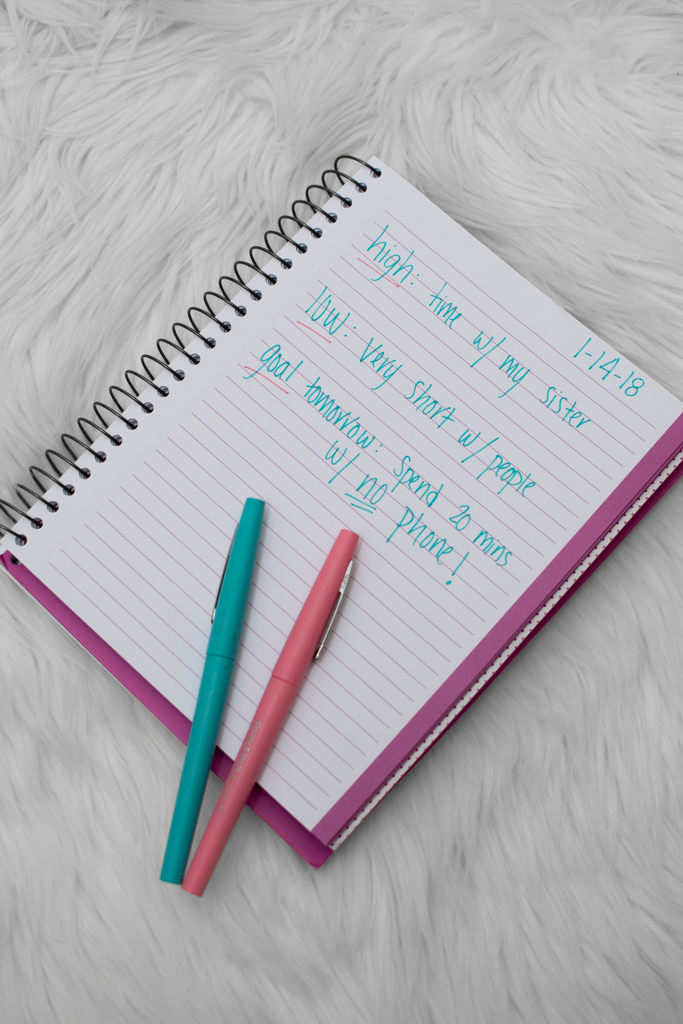 1-14-18
high: time w/ my sister
low: very short w/ people
goal tomorrow: spend 20 mins
w/ no phone!